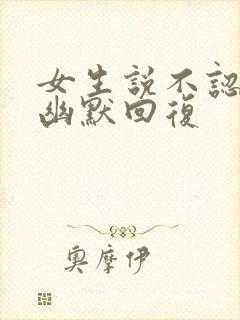 女生說不認
幽默回復
奧摩伊